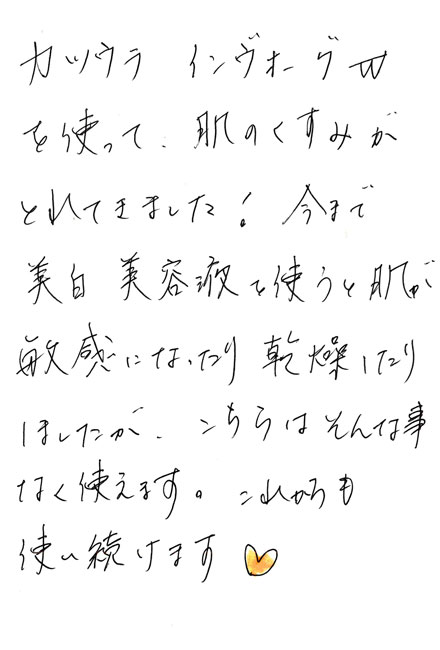 カツウラ インヴォーグW
を使って、肌のくすみが
とれてきました！ 今まで
美白 美容液を使うと肌が
敏感になったり 乾燥したり
しましたが、こちらはそんな事
なく使えます。これからも
使い続けます